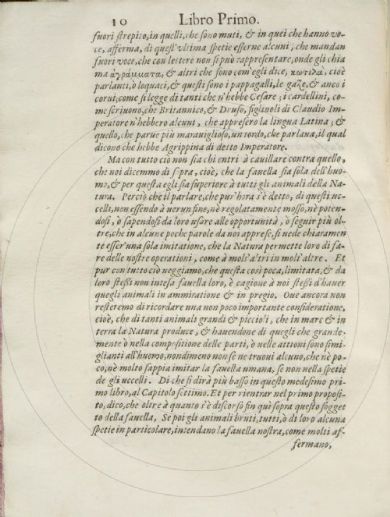 10 Libro Primo.
fuori strepito, in quelli, che sono muti, & in quei che hanno vo-
ce, afferma, di quest'vltima spetie esserne alcuni, che mandan
fuori voce, che con lettere non si può rappresentare, onde gli chia
ma ἀγράμματα, & altri che sono, com'egli dice, κωτιλά, cioè
parlanti, ò loquaci, & questi sono i pappagalli, le gaze, & anco i
corui, come si legge di tanti che n'hebbe Cesare; i cardellini, co-
me scriuono, che Britannico, & Druso, figliuoli di Claudio Im-
peratore n'hebbero alcuni, che appresero la lingua Latina; &
quello, che parue più marauiglioso, un tordo, che parlaua, il qual
dicono che hebbe Agrippina di detto Imperatore.
Ma con tutto ciò non sia chi entri à cauillare contra quello,
che noi dicemmo di sopra, cioè, che la fauella sia sola dell'huo-
mo, & per questa egli sia superiore à tutti gli animali della Na-
tura. Perciò che il parlare, che pur'hora s'è detto, di questi uc-
celli, non essendo à uerun fine, nè regolatamente mosso, nè poten-
dosi, ò sapendosi da loro usare alle opportunità, ò seguir più ol-
tre, che in alcune poche parole da noi apprese, si uede chiaramen
te esser'una sola imitatione, che la Natura permette loro di fa-
re delle nostre operationi, come à molt'altri in molt'altre. Et
pur con tutto ciò ueggiamo, che questa così poca, limitata, & da
loro stessi non intesa fauella loro, è cagione à noi stessi d'hauer
quegli animali in ammiratione & in pregio. Oue ancora non
resteremo di ricordare una non poco importante consideratione,
cioè, che di tanti animali grandi & piccioli, che in mare & in
terra la Natura produce, & hauendone di quegli che grande-
mente ò nella compositione delle parti, ò nelle attioni sono simi-
glianti all'huomo, nondimeno non se ne truoui alcuno, che nè po-
co, nè molto sappia imitar la fauella umana, se non nella spetie
de gli uccelli. Di che si dirà più basso in questo medesimo pri-
mo libro, al Capitolo settimo. Et per rientrar nel primo proposi-
to, dico, che oltre à quanto s'è discorso fin quì sopra questo sogget
to della fauella, Se poi gli animali bruti, tutti, ò di loro alcuna
spetie in particolare, intendano la fauella nostra, come molti af-
fermano,